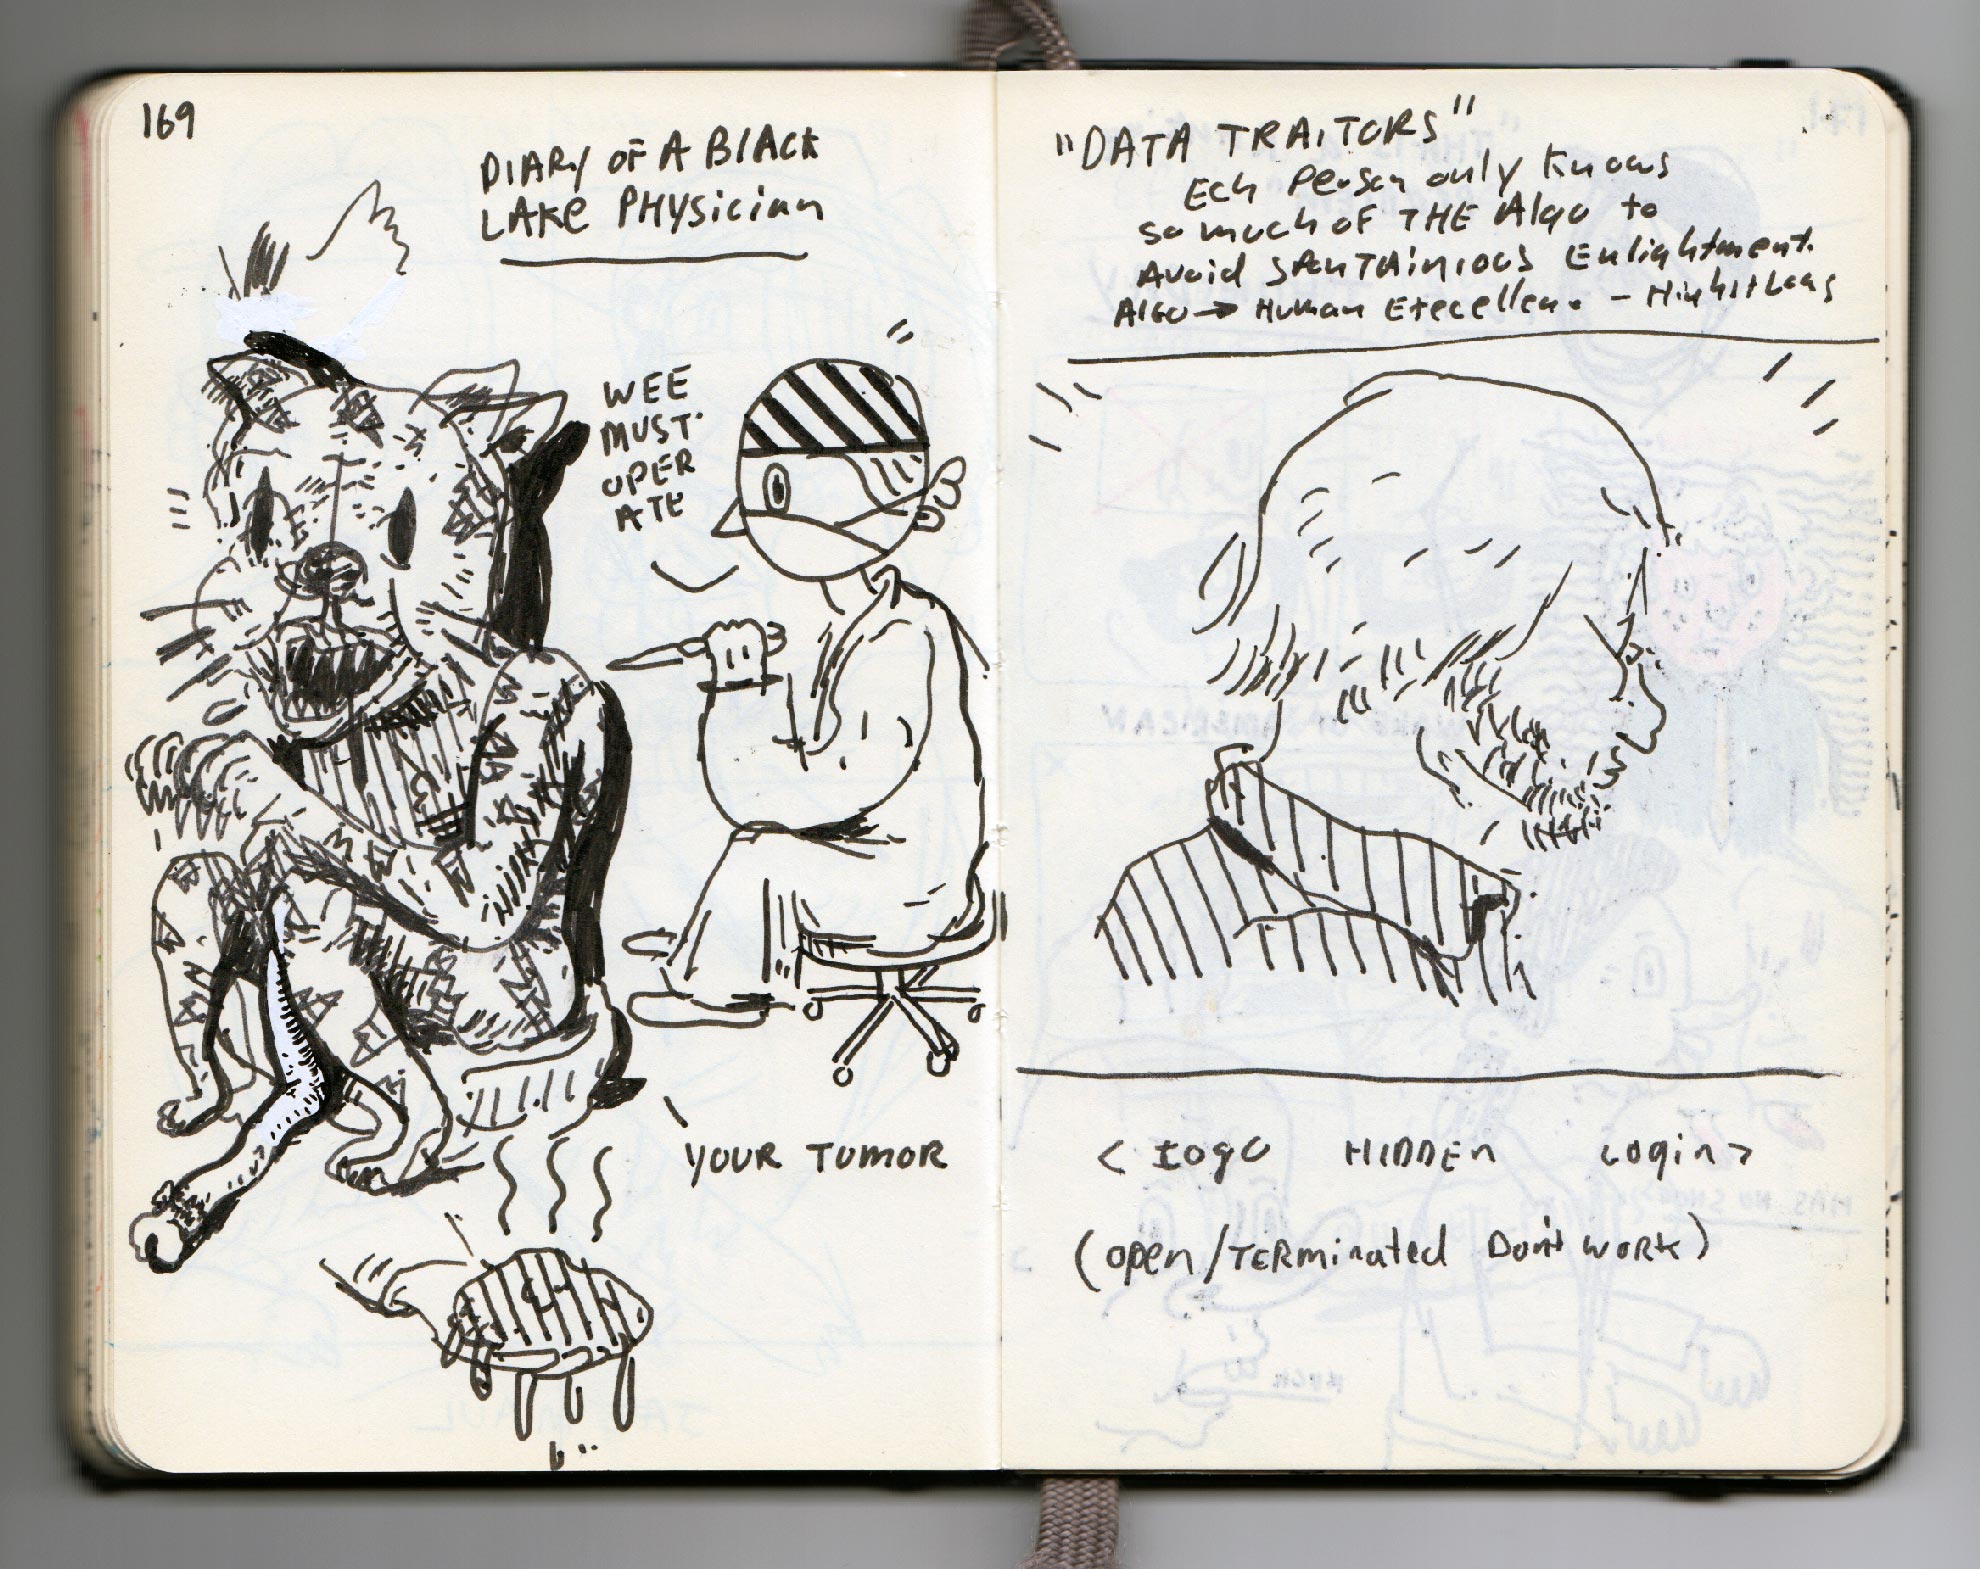 169
DIARY OF A BLACK
LAKE PHYSICIAN
WEE
MUST
OPER
ATE
YOUR TUMOR
"DATA TRAITORS"
Ech Person only Knows
so much of THE Algo to
Avoid SPONTAINIOUS Enlightment.
Algo → Human
< HIDDEN Login >
(open/TERMINATED Don't WORK)